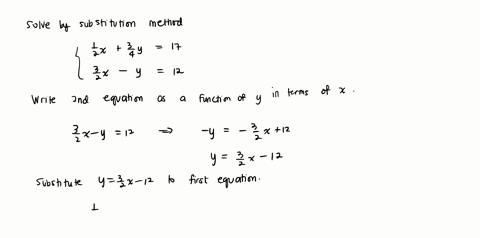 Solve by substitution method
1/2x + 3/4y = 17
3/2x - y = 12
Write 2nd equation as a function of y in terms of x.
3/2x-y = 12 ⇒ -y = -3/2x+12
y = 3/2x-12
Substitute y=3/2x-12 to first equation.
1